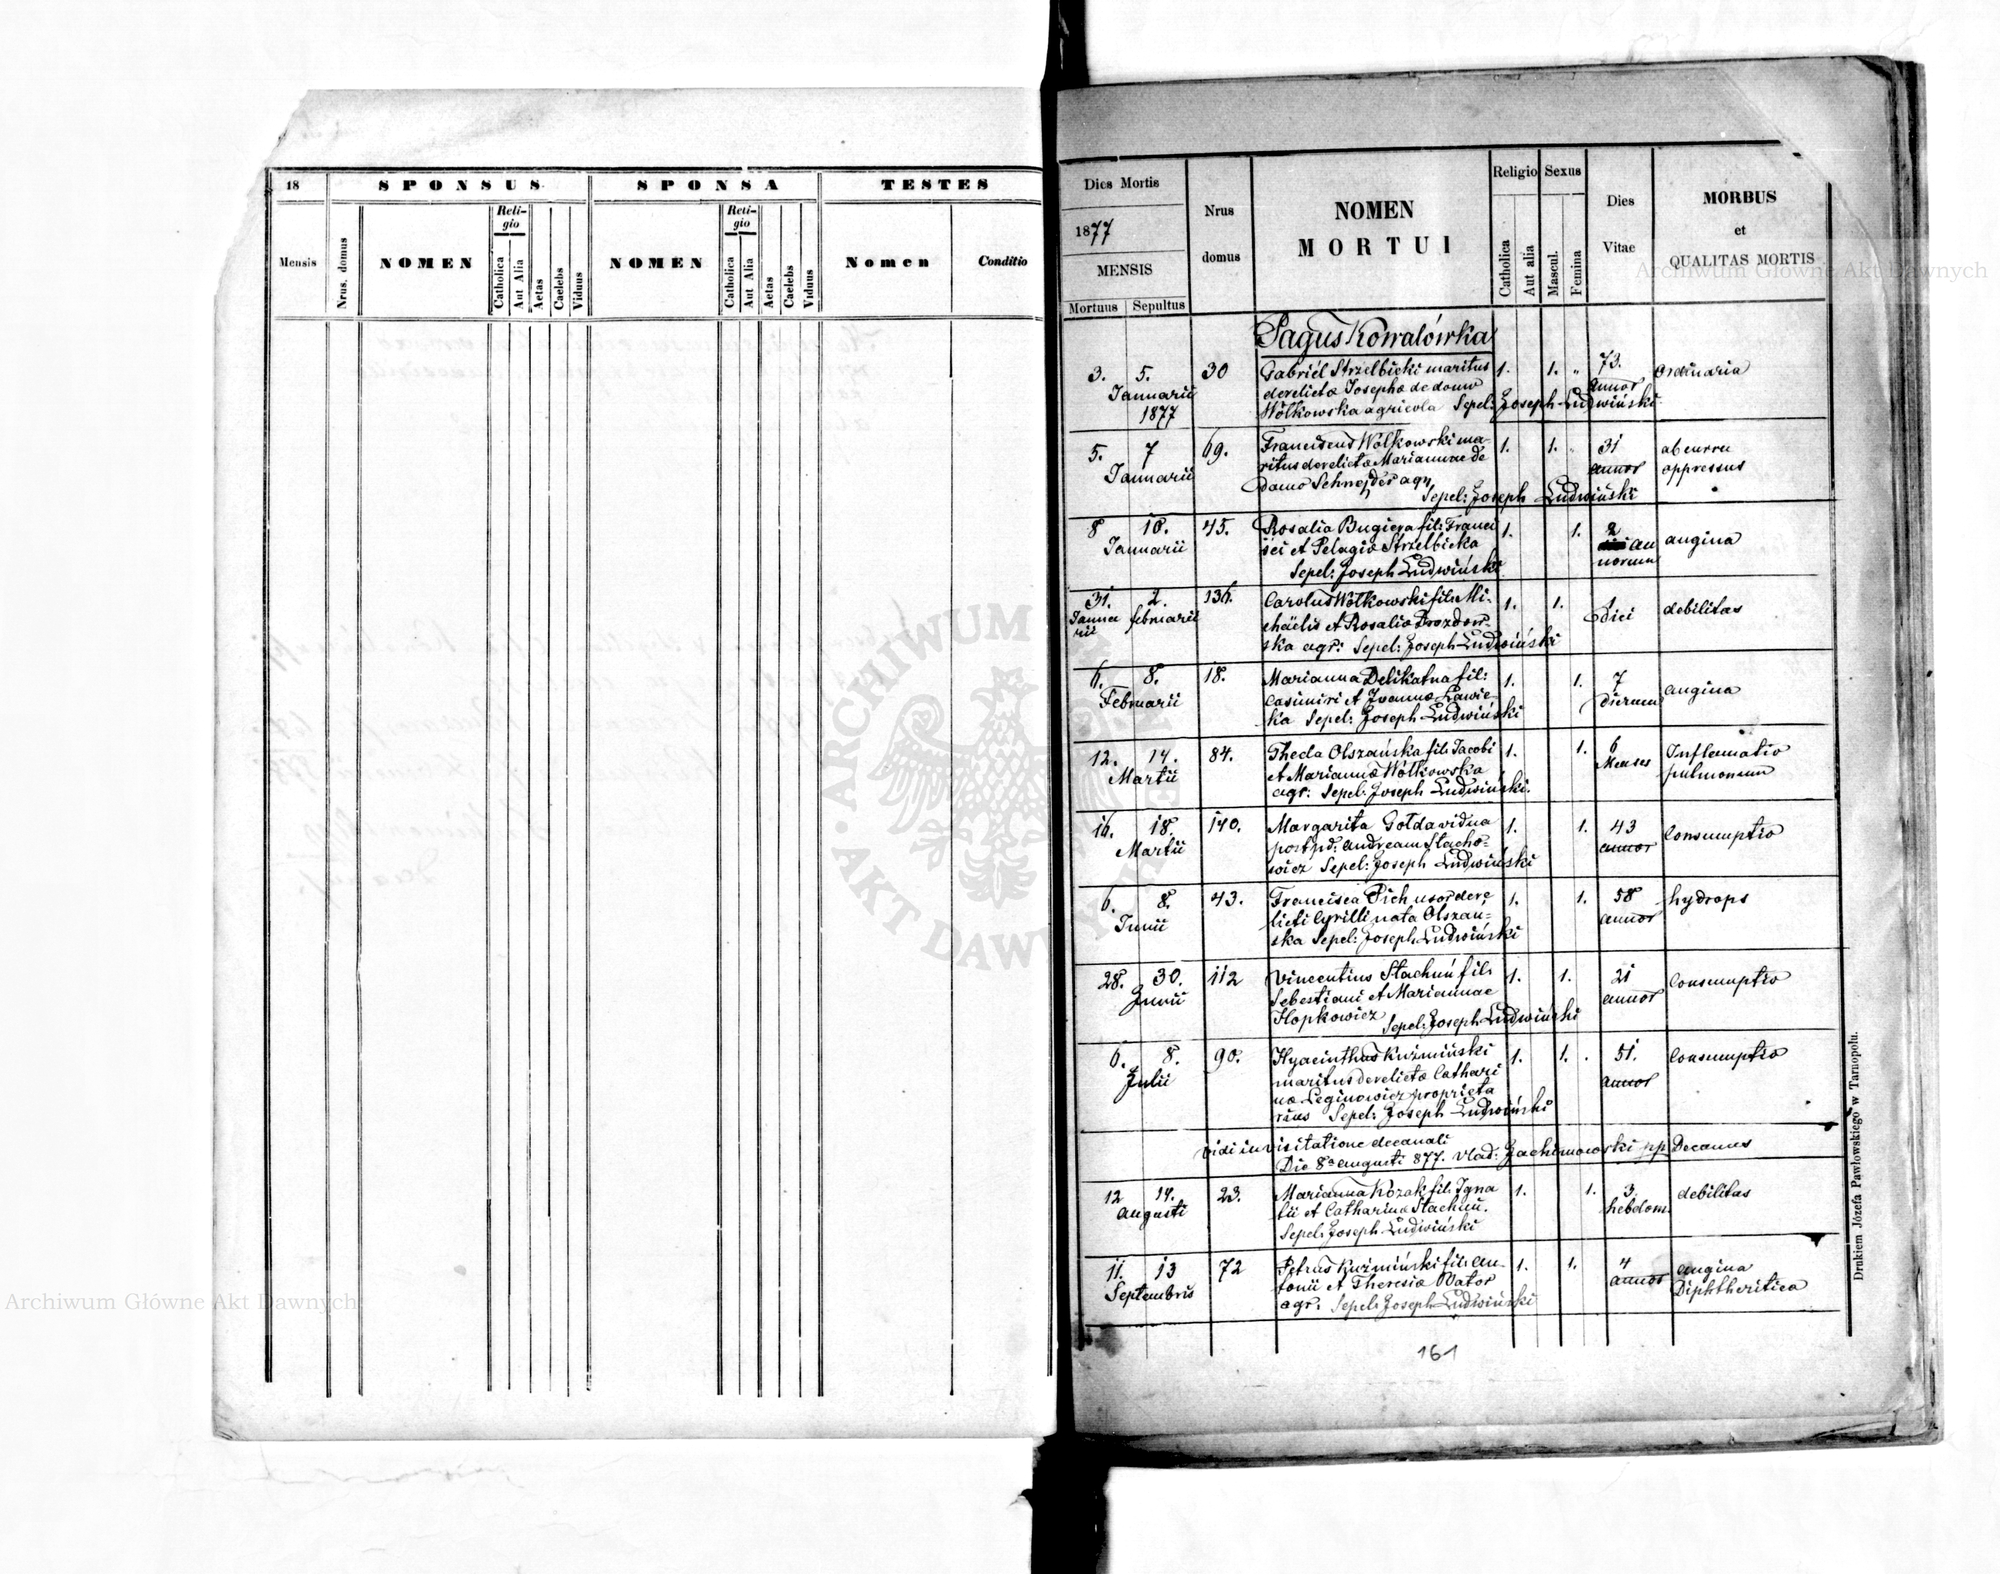 18
SPONSUS
SPONSA
TESTES
Mensis
Nrus. domus
NOMEN
Reli-
gio
Catholica
Aut Alia
Aetas
Caelebs
Viduus
NOMEN
Reli-
gio
Catholica
Aut Alia
Aetas
Caelebs
Viduus
Nomen
Conditio
Dies Mortis
1877
MENSIS
Mortuus Sepultus
Nrus
domus
NOMEN
MORTUI
Religio
Catholica
Aut alia
Sexus
Mascul.
Femina
Dies
Vitae
MORBUS
et
QUALITAS MORTIS
Pagus Kowalówka
3. 5. 30 Gabriél Strzelbicki maritus 1. 1. „ 73. ordinaria
Januarii derelictæ Josephæ de domo annor
1877 Wółkowska agricola Sepel: Joseph Ludwiński
5. 7 69. Franciscus Wółkowski ma- 1. 1. 31 ab curru
Januarii ritus derelictæ Mariannae de annor oppressus
domo Schnejder agr.
Sepel: Joseph Ludwiński
8 10. 45. Rosalia Bugiera fil: Franci 1. 1. 2 angina
Januarii sci et Pelagiæ Strzelbicka an
Sepel: Joseph Ludwiński norum
31. 2. 136. Carolus Wółkowski fil: Mi- 1. 1. 1 debilitas
Janua februarii chaëlis et Rosaliæ Drozdow- diei
rii ska agr: Sepel: Joseph Ludwiński
6. 8. 18. Marianna Delikatna fil: 1. 1. 7 angina
Februarii Casimiri et Joannæ Ławic- dierum
ka Sepel: Joseph Ludwiński
12. 14. 84. Thecla Olszańska fil: Jacobi 1. 1. 6 Inflamatio
Martii et Mariannæ Wółkowska Menses pulmonum
agr: Sepel: Joseph Ludwiński.
16. 18. 140. Margarita Gołda vidua 1. 1. 43 Consumptio
Martii post pd: Andream Stacho- annor
wicz Sepel: Joseph Ludwiński
6. 8. 43. Francisca Pich uxor dere, 1. 1. 58 hydrops
Junii licti Cyrilli nata Olszań- annor
ska Sepel: Joseph Ludwiński
28. 30. 112 Vincentius Stachuń fil: 1. 1. 21 Consumptio
Junii Sebestiani et Mariannae annor
Hopkowicz Sepel: Joseph Ludwiński
6. 8. 90. Hyacinthus Kuźmiński 1. 1. 51. Consumptio
Julii maritus derelictæ Cathari annor
næ Leginowicz proprieta
rius Sepel: Joseph Ludwiński
vidi in visitatione decanali
Die 8a Augusti 877. Vlad: Jachimowski pp Decanus
12 14. 23. Marianna Kozak fil: Igna 1. 1. 3. debilitas
Augusti tii et Catharinæ Stachuń. hebdom.
Sepel: Joseph Ludwiński
11. 13 72 Petrus Kuźmiński fil: An- 1. 1. 4 angina
Septembris tonii et Theresiæ Wator annor Diphtheritica
agr. Sepel: Joseph Ludwiński
161
Drukiem Józefa Pawłowskiego w Tarnopolu.
Archiwum Główne Akt Dawnych
Archiwum Główne Akt Dawnych